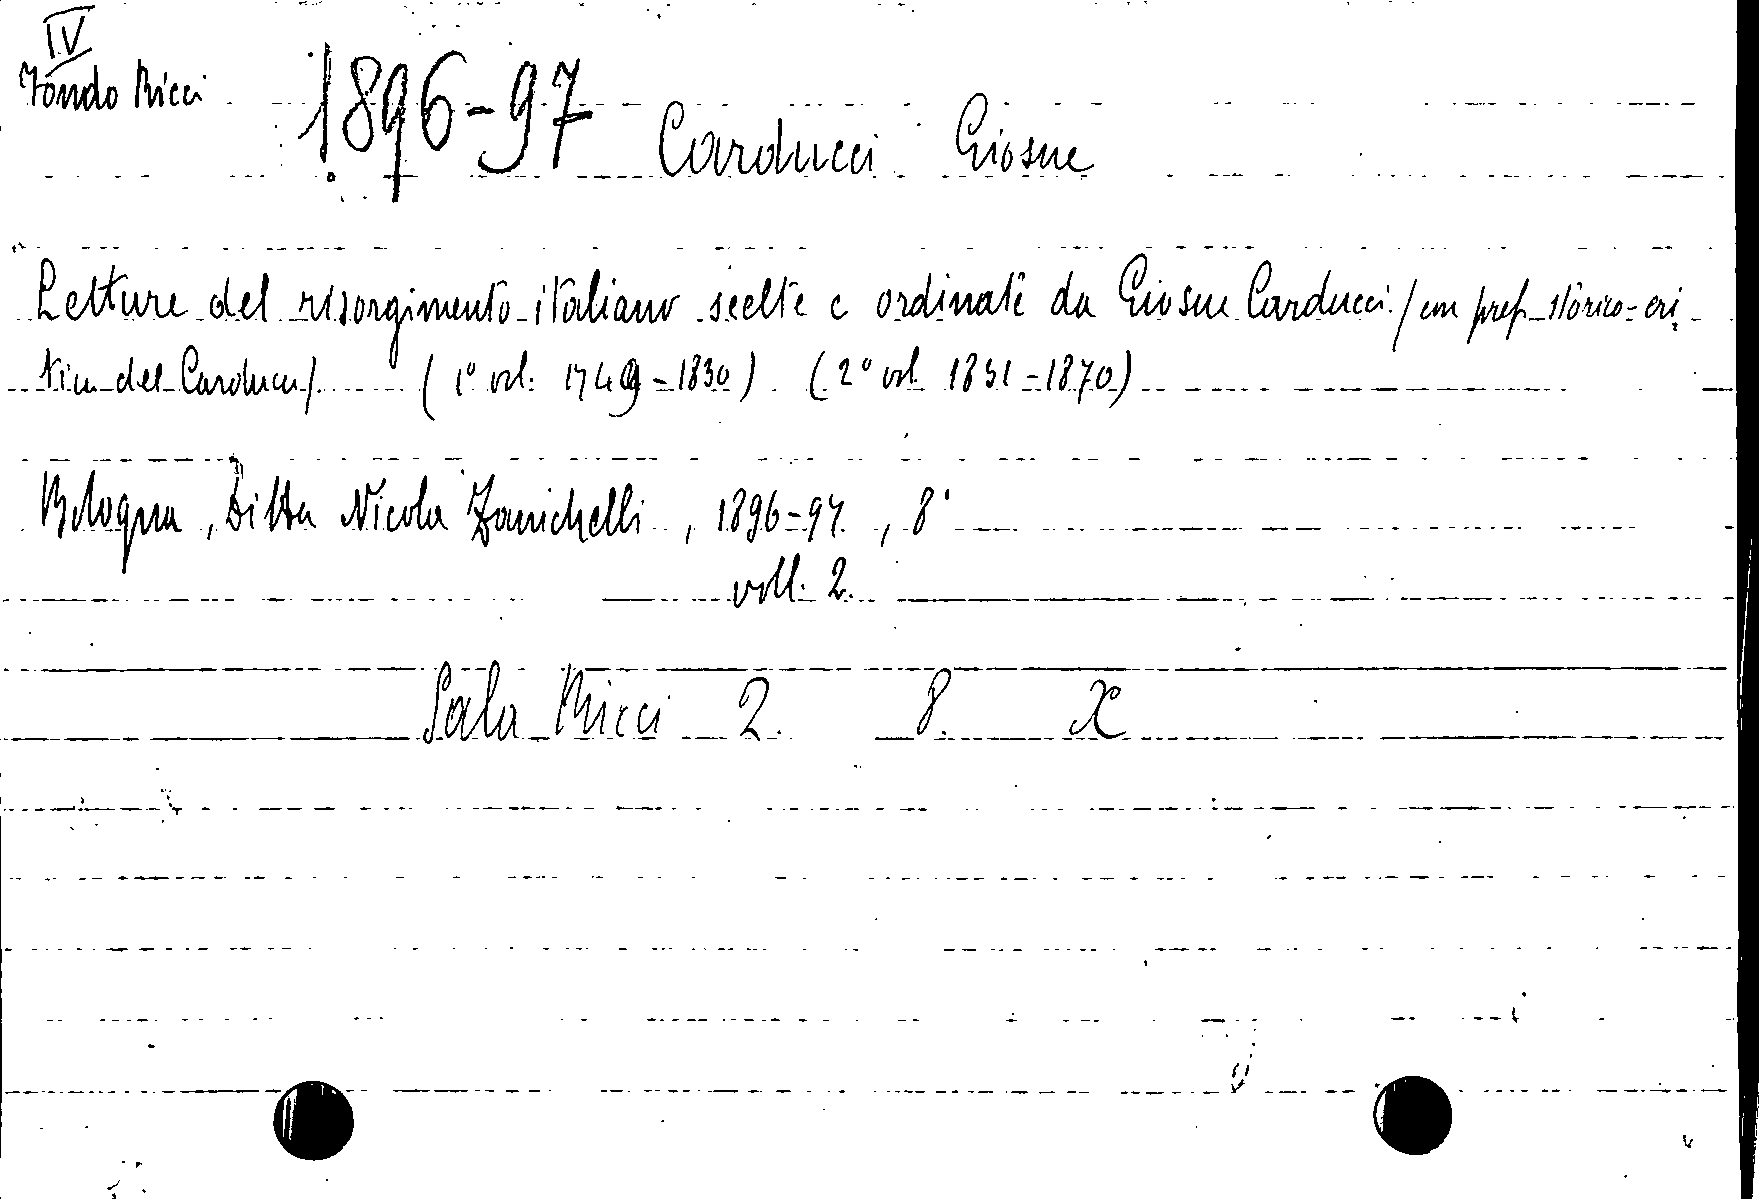 IV
Fondo Ricci
1896-97
Carducci Giosue
Letture del risorgimento italiano scelte e ordinate da Giosue Carducci /con pref. storico-cri
tica del Carducci/ (1° vol. 1749-1830) (2° vol 1831-1870)
Bologna, Ditta Nicola Zanichelli, 1896-97, 8°
voll. 2.
Sala Ricci 2. 8. X